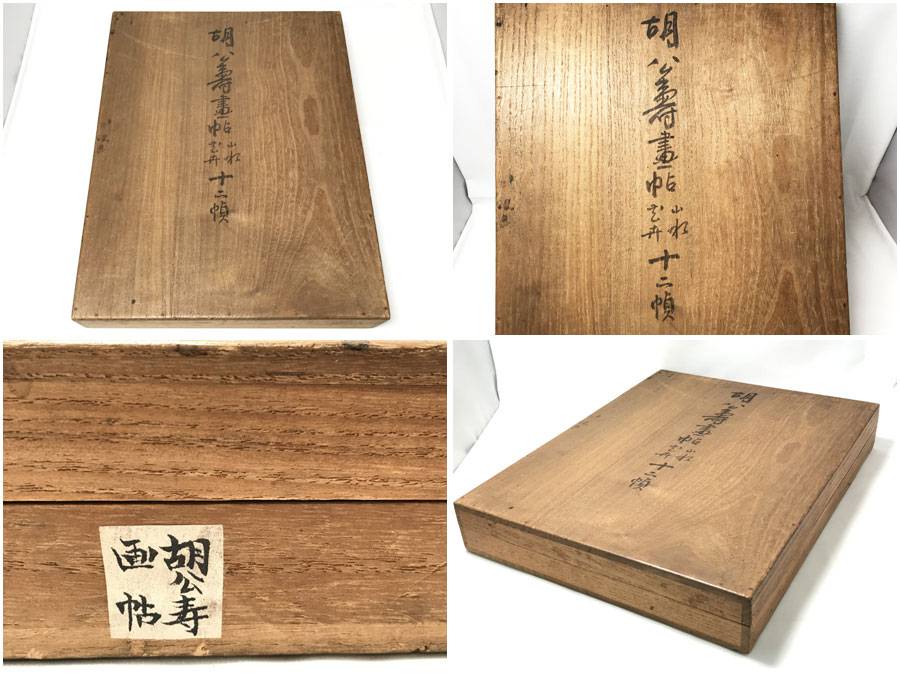 胡公壽畫帖山水花卉十二幀
胡公壽畫帖山水花卉十二幀
胡公寿
画帖
胡公壽畫帖山水花卉十二幀